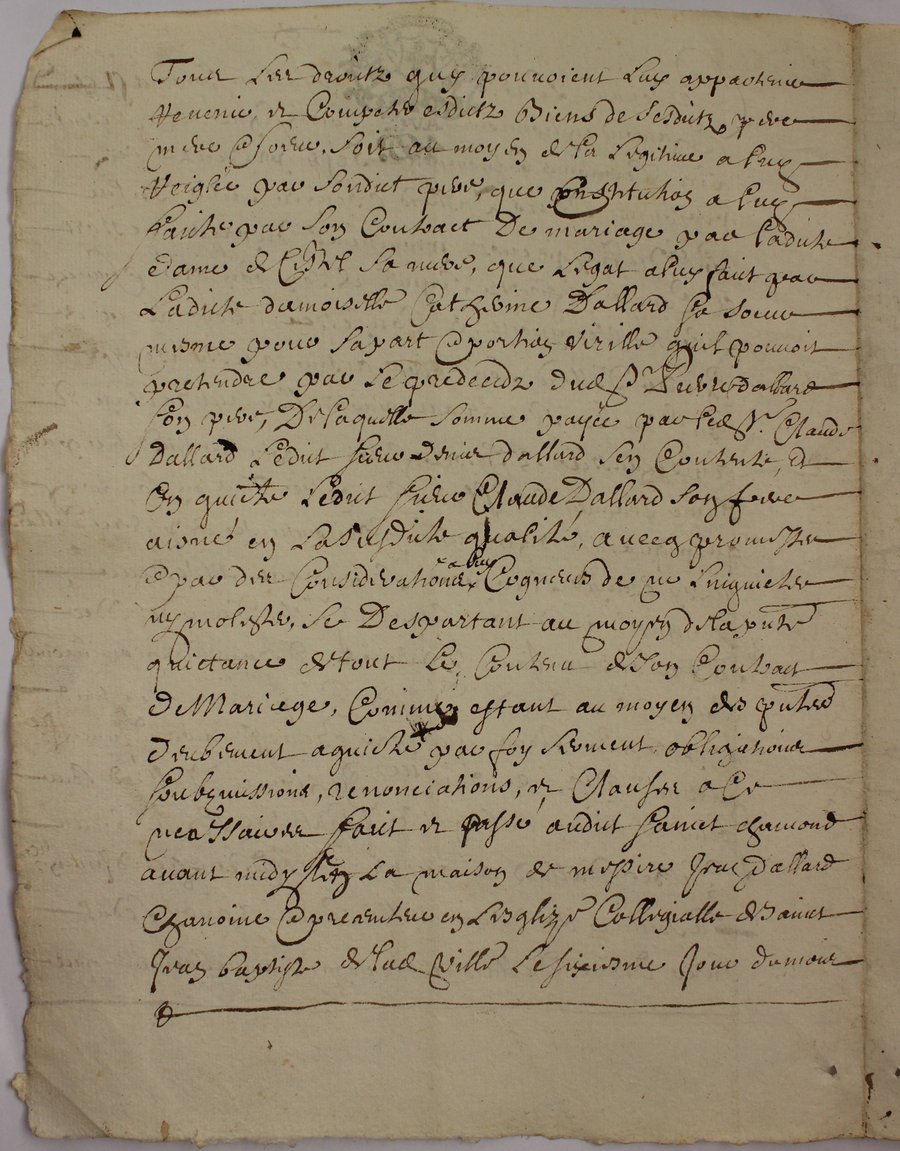 Tous les droitz quy pouvoient luy appartenir
venir et Competer esditz Biens de sesditz pere
mere & soeur, soit au moyen de la legitime a luy
reiglée par sondict pere, que constitution a luy
faicte par son Contract De mariage par ladicte
dame de sa mere, que legat a luy faict par
Ladicte damoiselle Catherine Dallard sa soeur
mesme pour sa part & portion virille quil pouvoit
pretendre par le predeceds dud Sr. Pierre dallard
son pere, De laquelle somme payée par led Sr. Claude
Dallard Ledict sieur Denis dallard sen Contente, et
En quicte Ledict sieur Claude Dallard son frere
aisné en La susdicte qualité, avecq promesse
& par des Considerations a luy Cogneues de ne linquieter
ny molester, se Despartant au moyen de la pnte
quictance de tout le Contenu de son Contract
De Mariege, Comme estant au moyen des pntes
deubement aquicté par foy serment obligations
soubzmissions, renonciations, et Clauses a ce
necessaires faict et passé audict sainct chamond
avant midy en La maison de messire Jean dallard
Chanoine & precenteur en Lesglize Collegialle de sainct
Jean baptiste de lad ville Le sixiesme Jour du mois
d